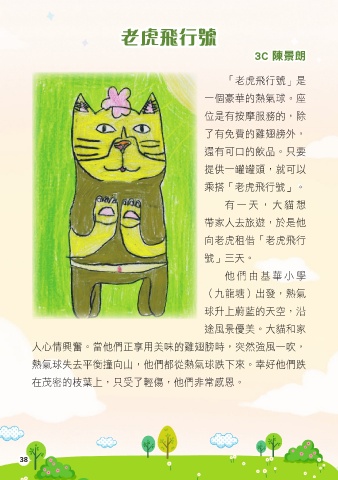 老虎飛行號
3C 陳景朗
「老虎飛行號」是
一個豪華的熱氣球。座
位是有按摩服務的，除
了有免費的雞翅膀外，
還有可口的飲品。只要
提供一罐罐頭，就可以
乘搭「老虎飛行號」。
有一天，大貓想
帶家人去旅遊，於是他
向老虎租借「老虎飛行
號」三天。
他們由基華小學
（九龍塘）出發，熱氣
球升上蔚藍的天空，沿
途風景優美。大貓和家
人心情興奮。當他們正享用美味的雞翅膀時，突然強風一吹，
熱氣球失去平衡撞向山，他們都從熱氣球跌下來。幸好他們跌
在茂密的枝葉上，只受了輕傷，他們非常感恩。
38